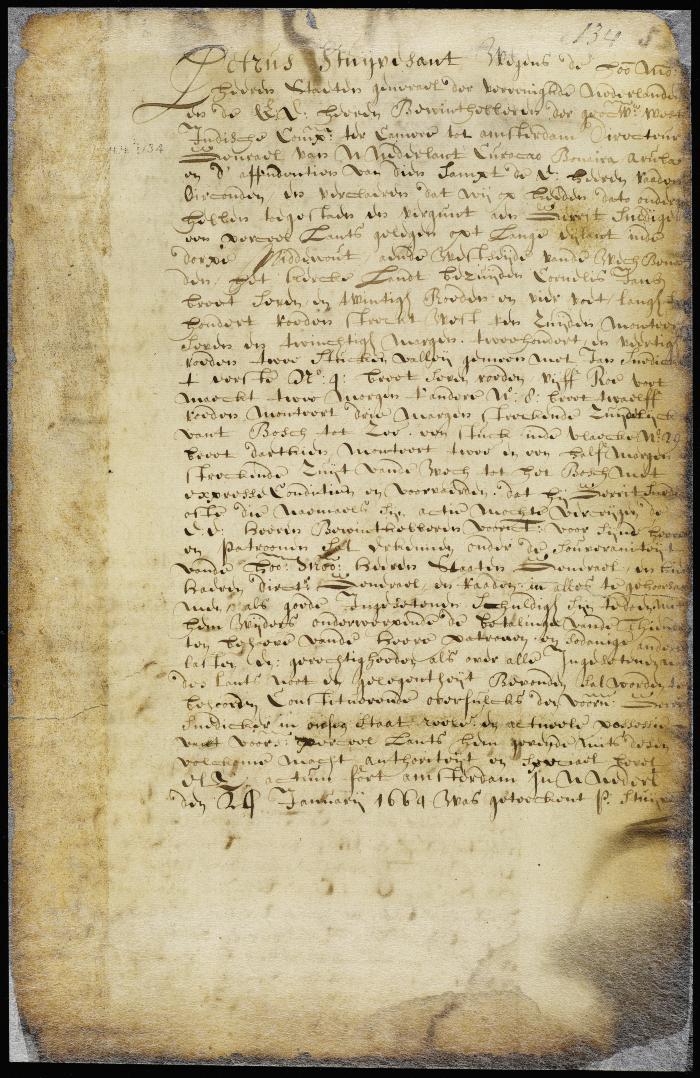 134
Petrus Stuijvesant Wegens de Hoo: Mo:
Heeren Staeten generael der vereenighde Nederlanden
en de E: E: heeren Bewinthebberen der geoctr: West
Indische Comp: ter Camere tot amsterdam Directeur
Generael van N Nederlant Curacao Bonaira Aruba
en d' appendentien van dien Sampt de E: heeren raaden
Oirconden en verclaeren dat wij op heeden dato onder
hebben toegestaen en vergunt aen Gerrit
een perceel Lants gelegen opt Lange eijlant inde
dorpe Middewout, aende Westzijde vande Wech
den het kercke Landt bezuijden Cornelis Jans
breet Seven en twintigh Roeden en vier voet, langh
hondert roeden streckt West ten Zuijden
Seven en twintigh margen tweehondert en veertigh
roeden twee stucken valleij gemeen met Jan
t eerste No: 9: breet seven roeden vijff voet
maeckt twee margen t'andere No: 8: breet twaelff
roeden Monteert drie Margen streckende Zuijdelijck
vant Bosch tot Zee een stuck inde vlacke No 29
breet darthien Monteert twee en een half Margen
streckende Zuijt vande Wech tot het Bosch Met
expresse Conditien en voorwaerden, dat hij Gerrit
ofte die naemaels sijn actie mochte vercrijgen de
E: E: Heeren Bewinthebberen voorn: voor sijne heeren
en Patroonen sal erkennen onder de souverainiteijt
vande Hoo: Moo: Heeren Staeten Generael, en hier
haeren Direct: Generael en Raaden in alles te gehoorsa
men, als goede Ingesetenen schuldigh sijn te doen, mits
hem wijders onderwerpende de betalinge vande Thien
ten behoeve vande Heere patroonen en sodanige andere
lasten en gerechtigheeden als over alle Ingesetenen
des Lants noot en gelegentheijt Bevonden sal worden te
behooren Constitueerende oversulcks den voorn: Gerrit
in onse Staat reele en actueele possessie
vant voors: perceel Lants hem gevende mits desen
volckome macht authoriteijt en speciael bevel
actum fort amsterdam In N Nederl
den 24 Januarij 1664 Was geteeckent P. Stuijv